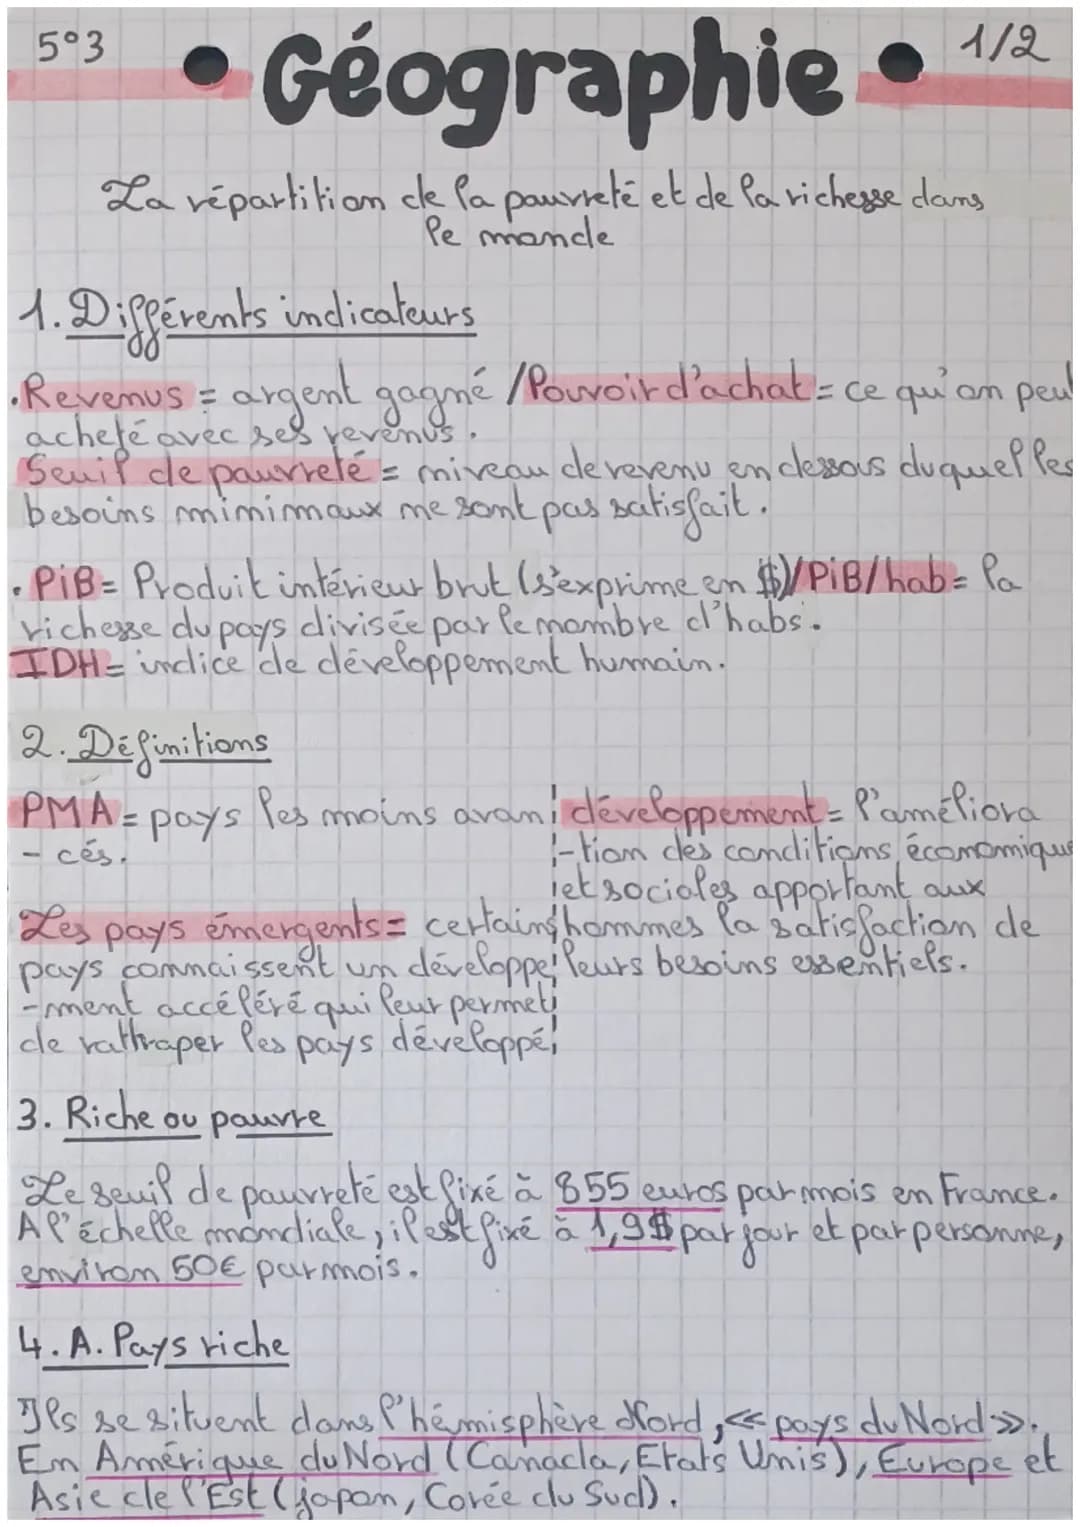 5°3
• Géographie •
1/2
La répartition de la pauvreté et de la richesse dans
le monde
1. Différents indicateurs
• Revenus = argent gagné / Pouvoir d'achat = ce qu'on peut
acheté avec ses revenus.
Seuil de pauvreté = niveau de revenu en dessous duquel les
besoins minimaux ne sont pas satisfait.
• PiB = Produit intérieur brut (s'exprime en $) / PiB/hab = la
richesse du pays divisée par le nombre d'habs.
IDH = indice de développement humain.
2. Définitions
PMA = pays les moins avan
- cés.
Les pays émergents = certains
pays connaissent un développe
-ment accéléré qui leur permet
de rattraper les pays développé
développement = l'améliora
-tion des conditions économique
et sociales apportant aux
hommes la satisfaction de
leurs besoins essentiels.
3. Riche ou pauvre
Le seuil de pauvreté est fixé à 855 euros par mois en France.
A l'échelle mondiale, il est fixé à 1,9$ par jour et par personne,
environ 50€ par mois.
4. A. Pays riche
Ils se situent dans l'hémisphère Nord, << pays du Nord >>.
En Amérique du Nord (Canada, Etats Unis), Europe et
Asie de l'Est (japon, Corée du Sud).